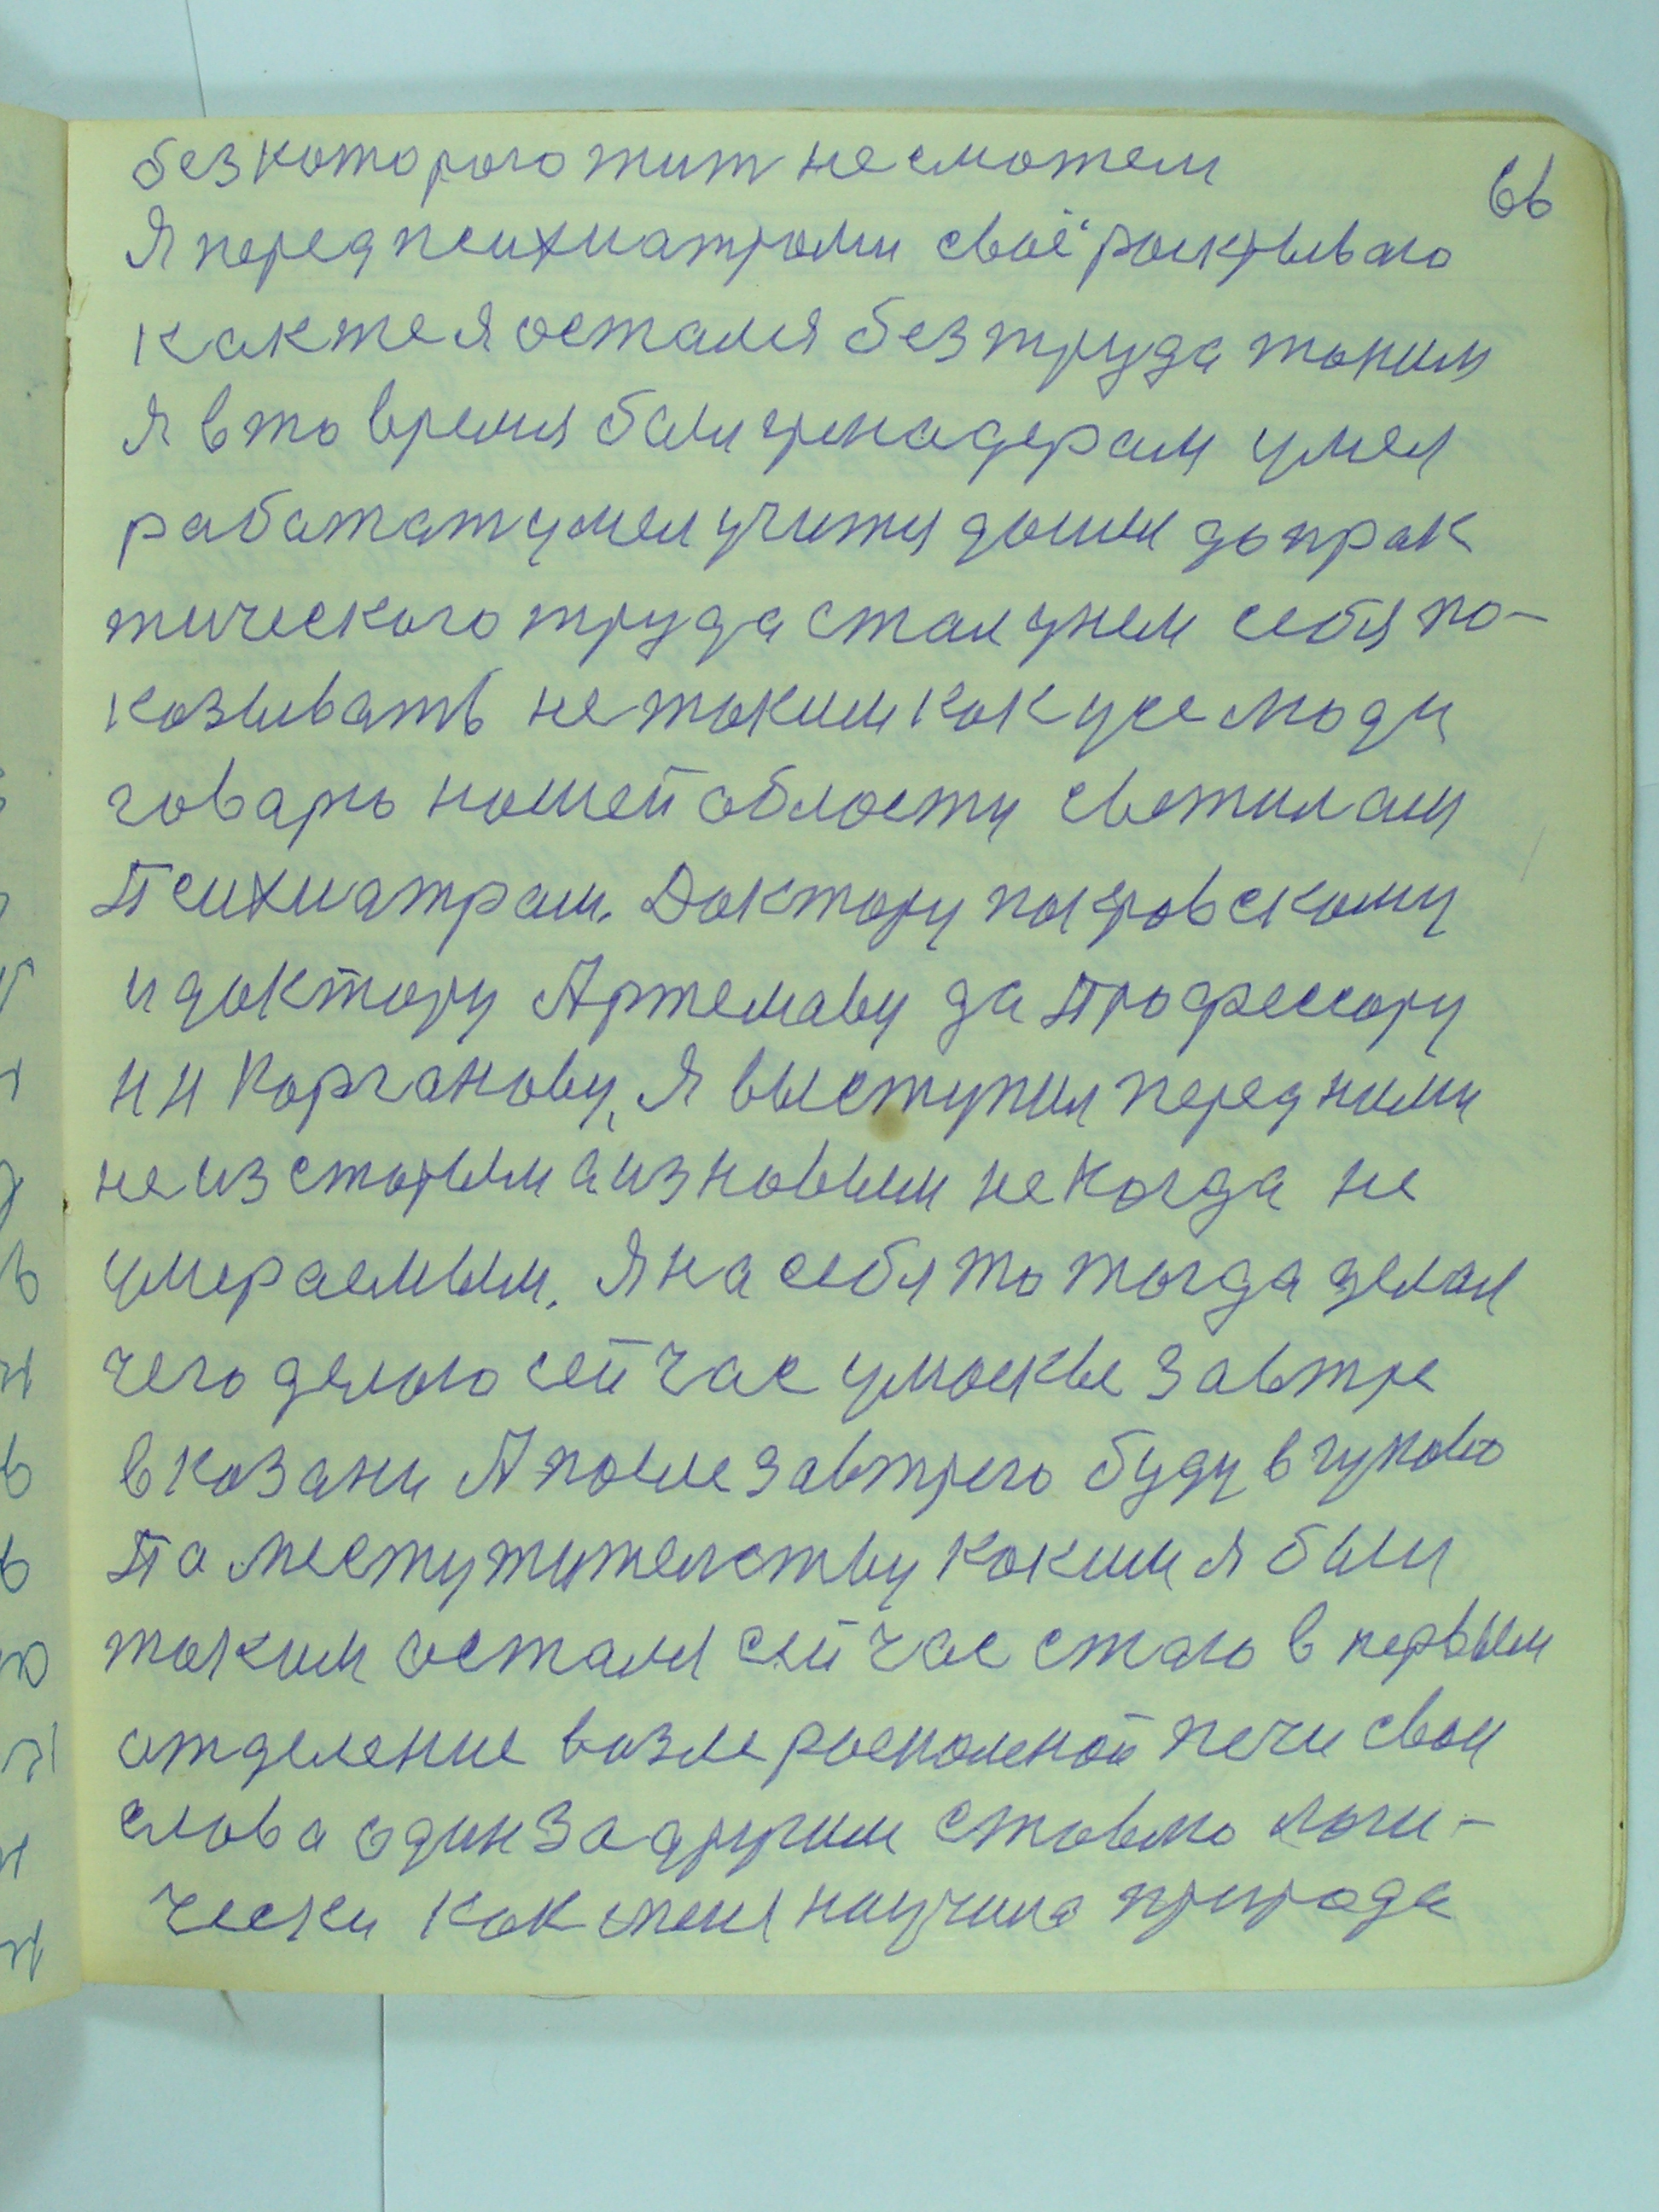 66
без которого жит не сможем
Я перед психиатрами своё раскрываю
как же я остался без труда таким
Я в то время был гренадерам умел
работат умел учится дошел до прак
тического труда стал у нем себя по-
казывать не таким как усе люди
говарю нашей области светилам
Психиатрам. Доктору покровскому
и доктору Артемаву да Профессору
Н Н Корганову, Я выступил перед ними
не из старым а из новым некогда не
умераемым. Я на себя то тогда делал
чего делаю сейчас у москве завтре
в казани А после завтрего буду в гуково
Па месту жительству каким я был
таким остался сейчас стаю в первым
отделение возле распаленой печи свои
слова один за другим ставлю логи-
чески как меня научила природа